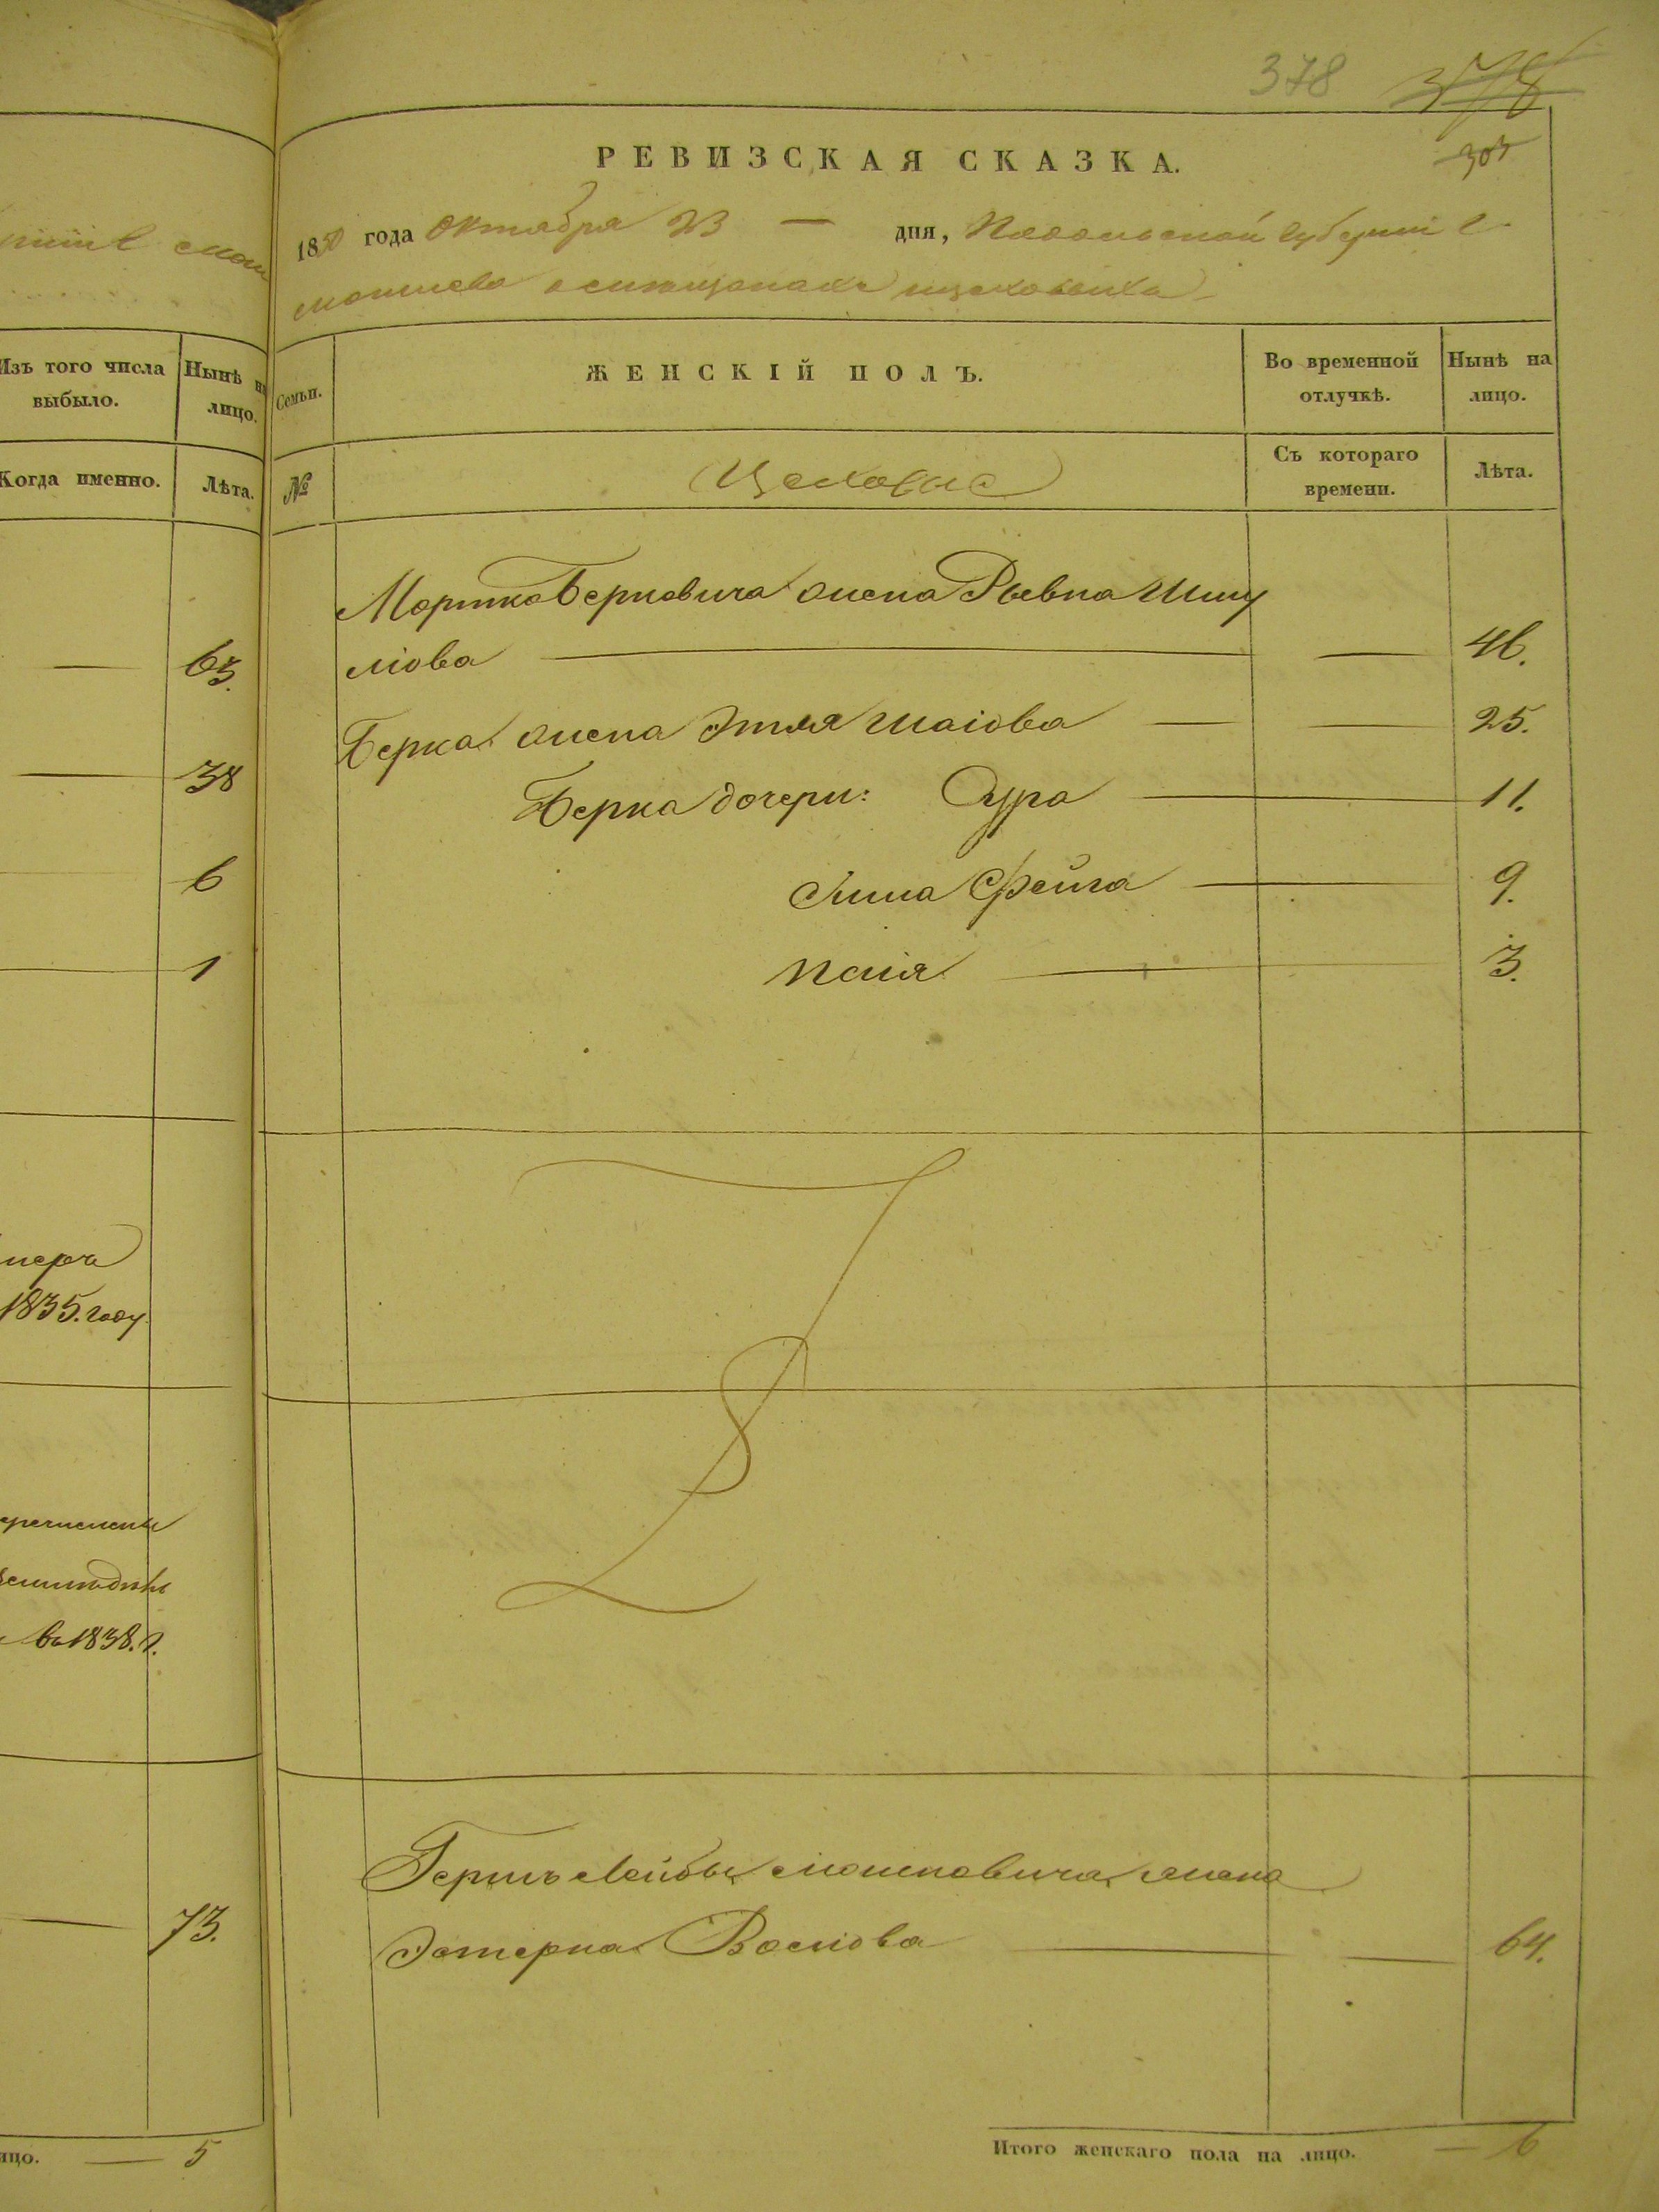 378 378
РЕВИЗСКАЯ СКАЗКА.
303
1850 года Октября 23 — дня, Подольской губернии г.
Могилева о мещанахъ цеховыхъ
Изъ того числа выбыло.
Нынѣ на лицо.
Когда именно.
Лѣта.
63.
38
6
1
1835. году
въ 1838. г.
73.
лицо. — 5
Семьи.
ЖЕНСКІЙ ПОЛЪ.
Во временной отлучкѣ.
Нынѣ на лицо.
№
Цеховые
Съ котораго времени.
Лѣта.
Мортка Берковича жена Рывка Шму
ліова — — 46.
Берка жена Этля Шаіова — — 25.
Берка дочери: Сура — 11.
Фейга — 9.
Песія — 3.
Гершъ Лейбы Мошковича жена
Эстерка — — 64.
Итого женскаго пола на лицо. — 6